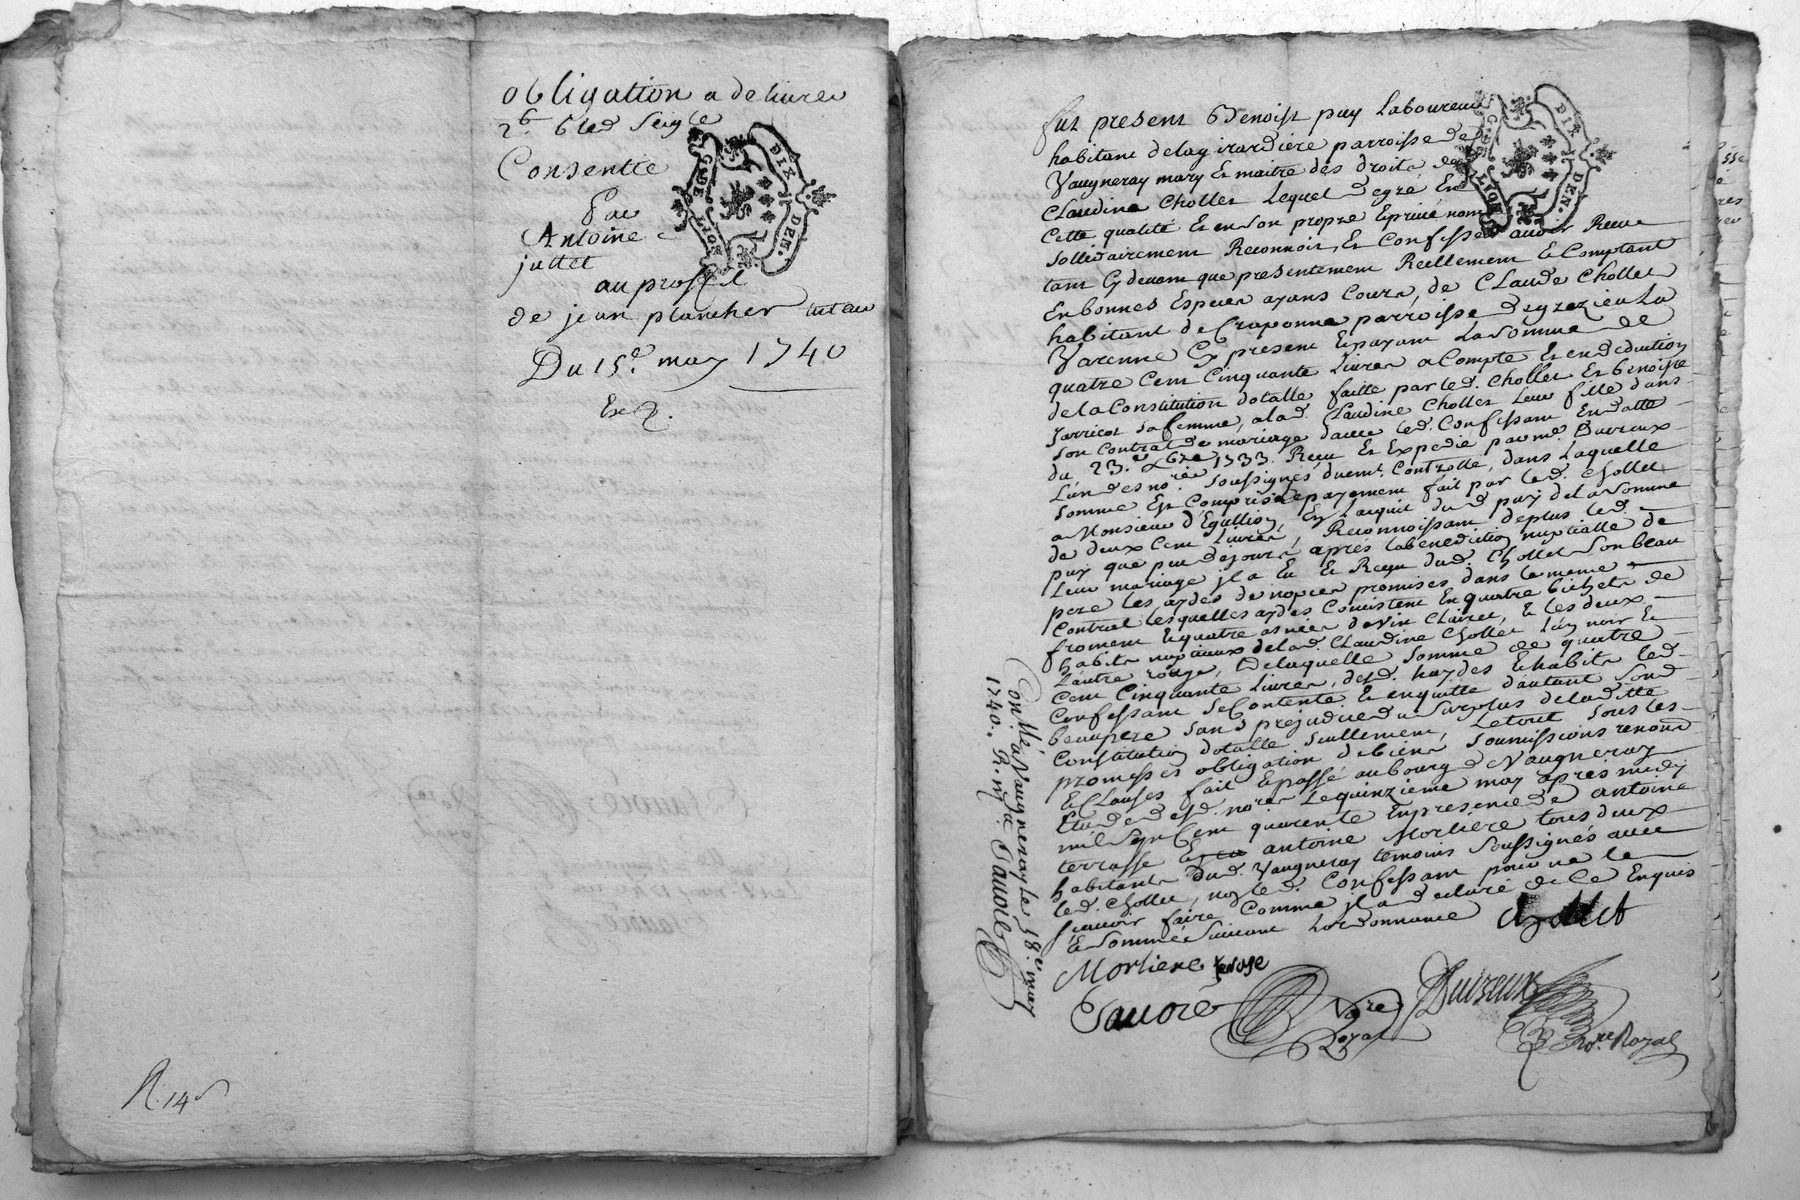 obligation a delivrer
2b. bled seigle
Consentie
Par
Antoine
juttet
au proffit
de jean plancher
Du 15e. may 1740
Ex.
R. 14
G. DE LION
DIX DEN.
fut present Benoist puy Laboureur
habitant delagirardiere parroisse de
Vaugneray mary Et maitre des droits de
Claudine Chollet Lequel degré En
Cette qualité Et en son propre Eprivé nom
sollidairement Reconnoit, Et Confesse avoir Receu
tant Cy devant que presentement Reellement Et Comptant
En bonnes Especes ayans Cours, de Claude Chollet
habitant de Craponne parroisse degrezieu La
Varenne Cy present Epayant La somme de
quatre Cent Cinquante Livres a Compte Et en deduction
de la Constitution dotalle faitte par led. Chollet Et benoite
Jarricot sa femme, alad. Claudine Chollet Leur fille dans
son Contrat de mariage davec led. Confessant En datte
du 23.e 1733. Receu Et Expedié par me. Duvreux
L'un des nores. soussignés duemt. Controllé, dans Laquelle
somme Est Compris Lepayement fait par led. Chollet
a Monsieur d'Egullion, En Lacquit dud puy dela somme
de deux Cent Livres, Reconnoissant deplus led.
puy que peu dejours aprés labenediction nuptialle de
Leur mariage jl a Eu Et Receu dud. Chollet son beau
pere les aydes de nopces promises dans le meme
Contrat lesquelles aydes Consistent En quatre bichets de
froment Equatre asnées devin Clairet, Et les deux
habits nuptiaux delad. Claudine Chollet L'un noir Et
Lautre rouge, delaquelle somme de quatre
Cent Cinquante Livres, desd. haydes Ehabits led.
Confessant seContente Et enquitte d'autant sond.
beaupere sans prejudice du surplus deladitte
Constitution dotalle seullement, Letout sous les
promesses obligation debiens soumissions renond
EtClauses fait Epassé aubourg de Vaugneray
Etude desd. nores Lequinzieme may aprés midy
mil sept Cent quarente Enpresence de antoine
terrasse Et antoine Morliere tous deux
habitants dud. Vaugneray temoins soussignés avec
led. Chollet, non led. Confessant pour ne le
sçavoir faire Comme jl a declaré de Ce Enquis
Et sommé suivant Lordonnance
chollet
Morliere terrasse
Duvreux
Nore
Royal
nore. Royal
Conllé. a Vaugneray le 18.e may
1740. R.